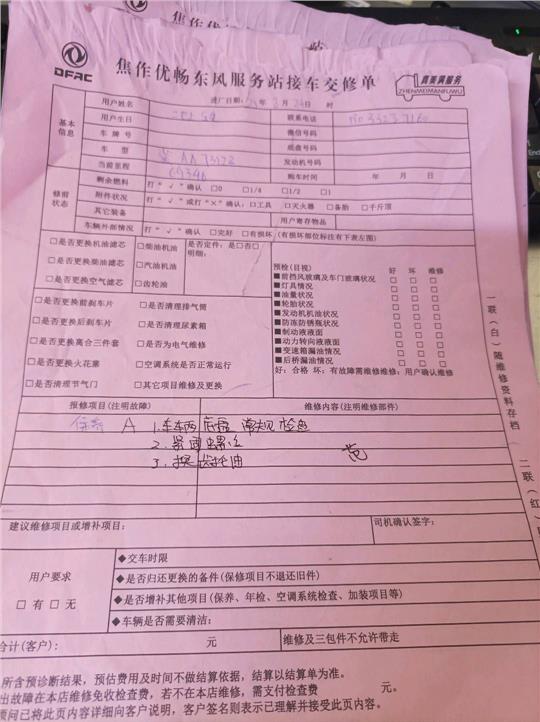 DFAC
焦作优畅东风服务站接车交修单
真美满服务
ZHENMEIMANFUWU
进厂日期： 年 月 日 时
基本信息
用户姓名
联系电话
用户生日
微信号码
车牌号
底盘号码
车型
发动机号码
当前里程
购车时间 年 月 日
修前状态
剩余燃料 打“√”确认 □0 □1/4 □1/2 □1
附件状况 打“√”或打“×”确认：□工具 □灭火器 □备胎 □千斤顶
其它装备
用户寄存物品
车辆外部情况 打“√”确认 □完好 □有损坏（有损坏部位标注有下表左图）
□是否更换机油滤芯 □柴油机油 是否定件：是□否□
□是否更换柴油滤芯 □汽油机油 明细：
□是否更换空气滤芯 □齿轮油
□是否更换前刹车片 □是否清理排气筒
□是否更换后刹车片 □是否清理尿素箱
□是否更换离合三件套 □是否为电气维修
□是否更换火花塞 □空调系统是否正常运行
□是否清理节气门 □其它项目维修及更换
预检(目视) 好 坏 维修
■前挡风玻璃及车门玻璃状况 □ □ □
■灯具情况 □ □ □
■油量状况 □ □ □
■轮胎状况 □ □ □
■发动机机油状况 □ □ □
■防冻防锈瓶状况 □ □ □
■制动液液面 □ □ □
■动力转向液液面 □ □ □
■变速箱漏油情况 □ □ □
■后桥漏油情况 □ □ □
好：合格 坏：有故障需维修维修：用户确认维修
报修项目(注明故障) 维修内容(注明维修部件)
保养 A 1.车辆底盘常规检查
2.
3.换齿轮油
建议维修项目或增补项目：
司机确认签字：
用户要求
□有 □无
◆交车时限
◆是否归还更换的备件(保修项目不退还旧件)
◆是否增补其他项目(保养、年检、空调系统检查、加装项目等)
◆车辆是否需要清洁：
合计(客户)： 元
维修及三包件不允许带走
所含预诊断结果，预估费用及时间不做结算依据，结算以结算单为准。
出故障在本店维修免收检查费，若不在本店维修，需支付检查费 元。
顾问已将此页内容详细向客户说明，客户签名则表示已理解并接受此页内容。
一联（白）随维修资料存档
二联（红）